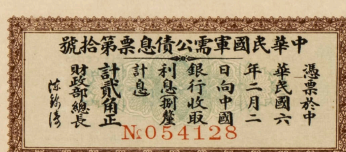 中華民國軍需公債息票第拾號
憑票於中
華民國六
年二月二
日向中國
銀行收取
利息捌釐
計息
計貳角正
財政部總長
陳錦濤
№054128